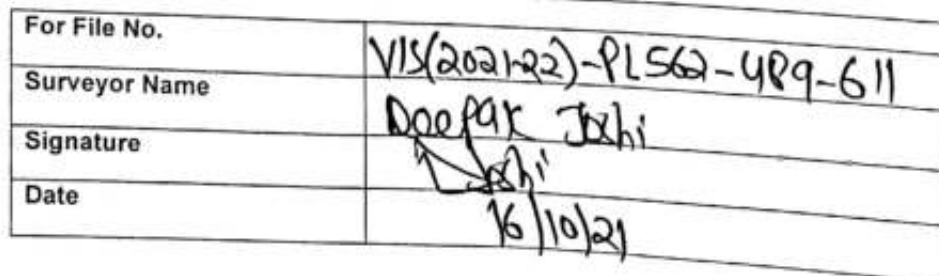 For File No. VIS(2021-22)-PL562-489-611
Surveyor Name Deepak Joshi
Signature Joshi
Date 16/10/21